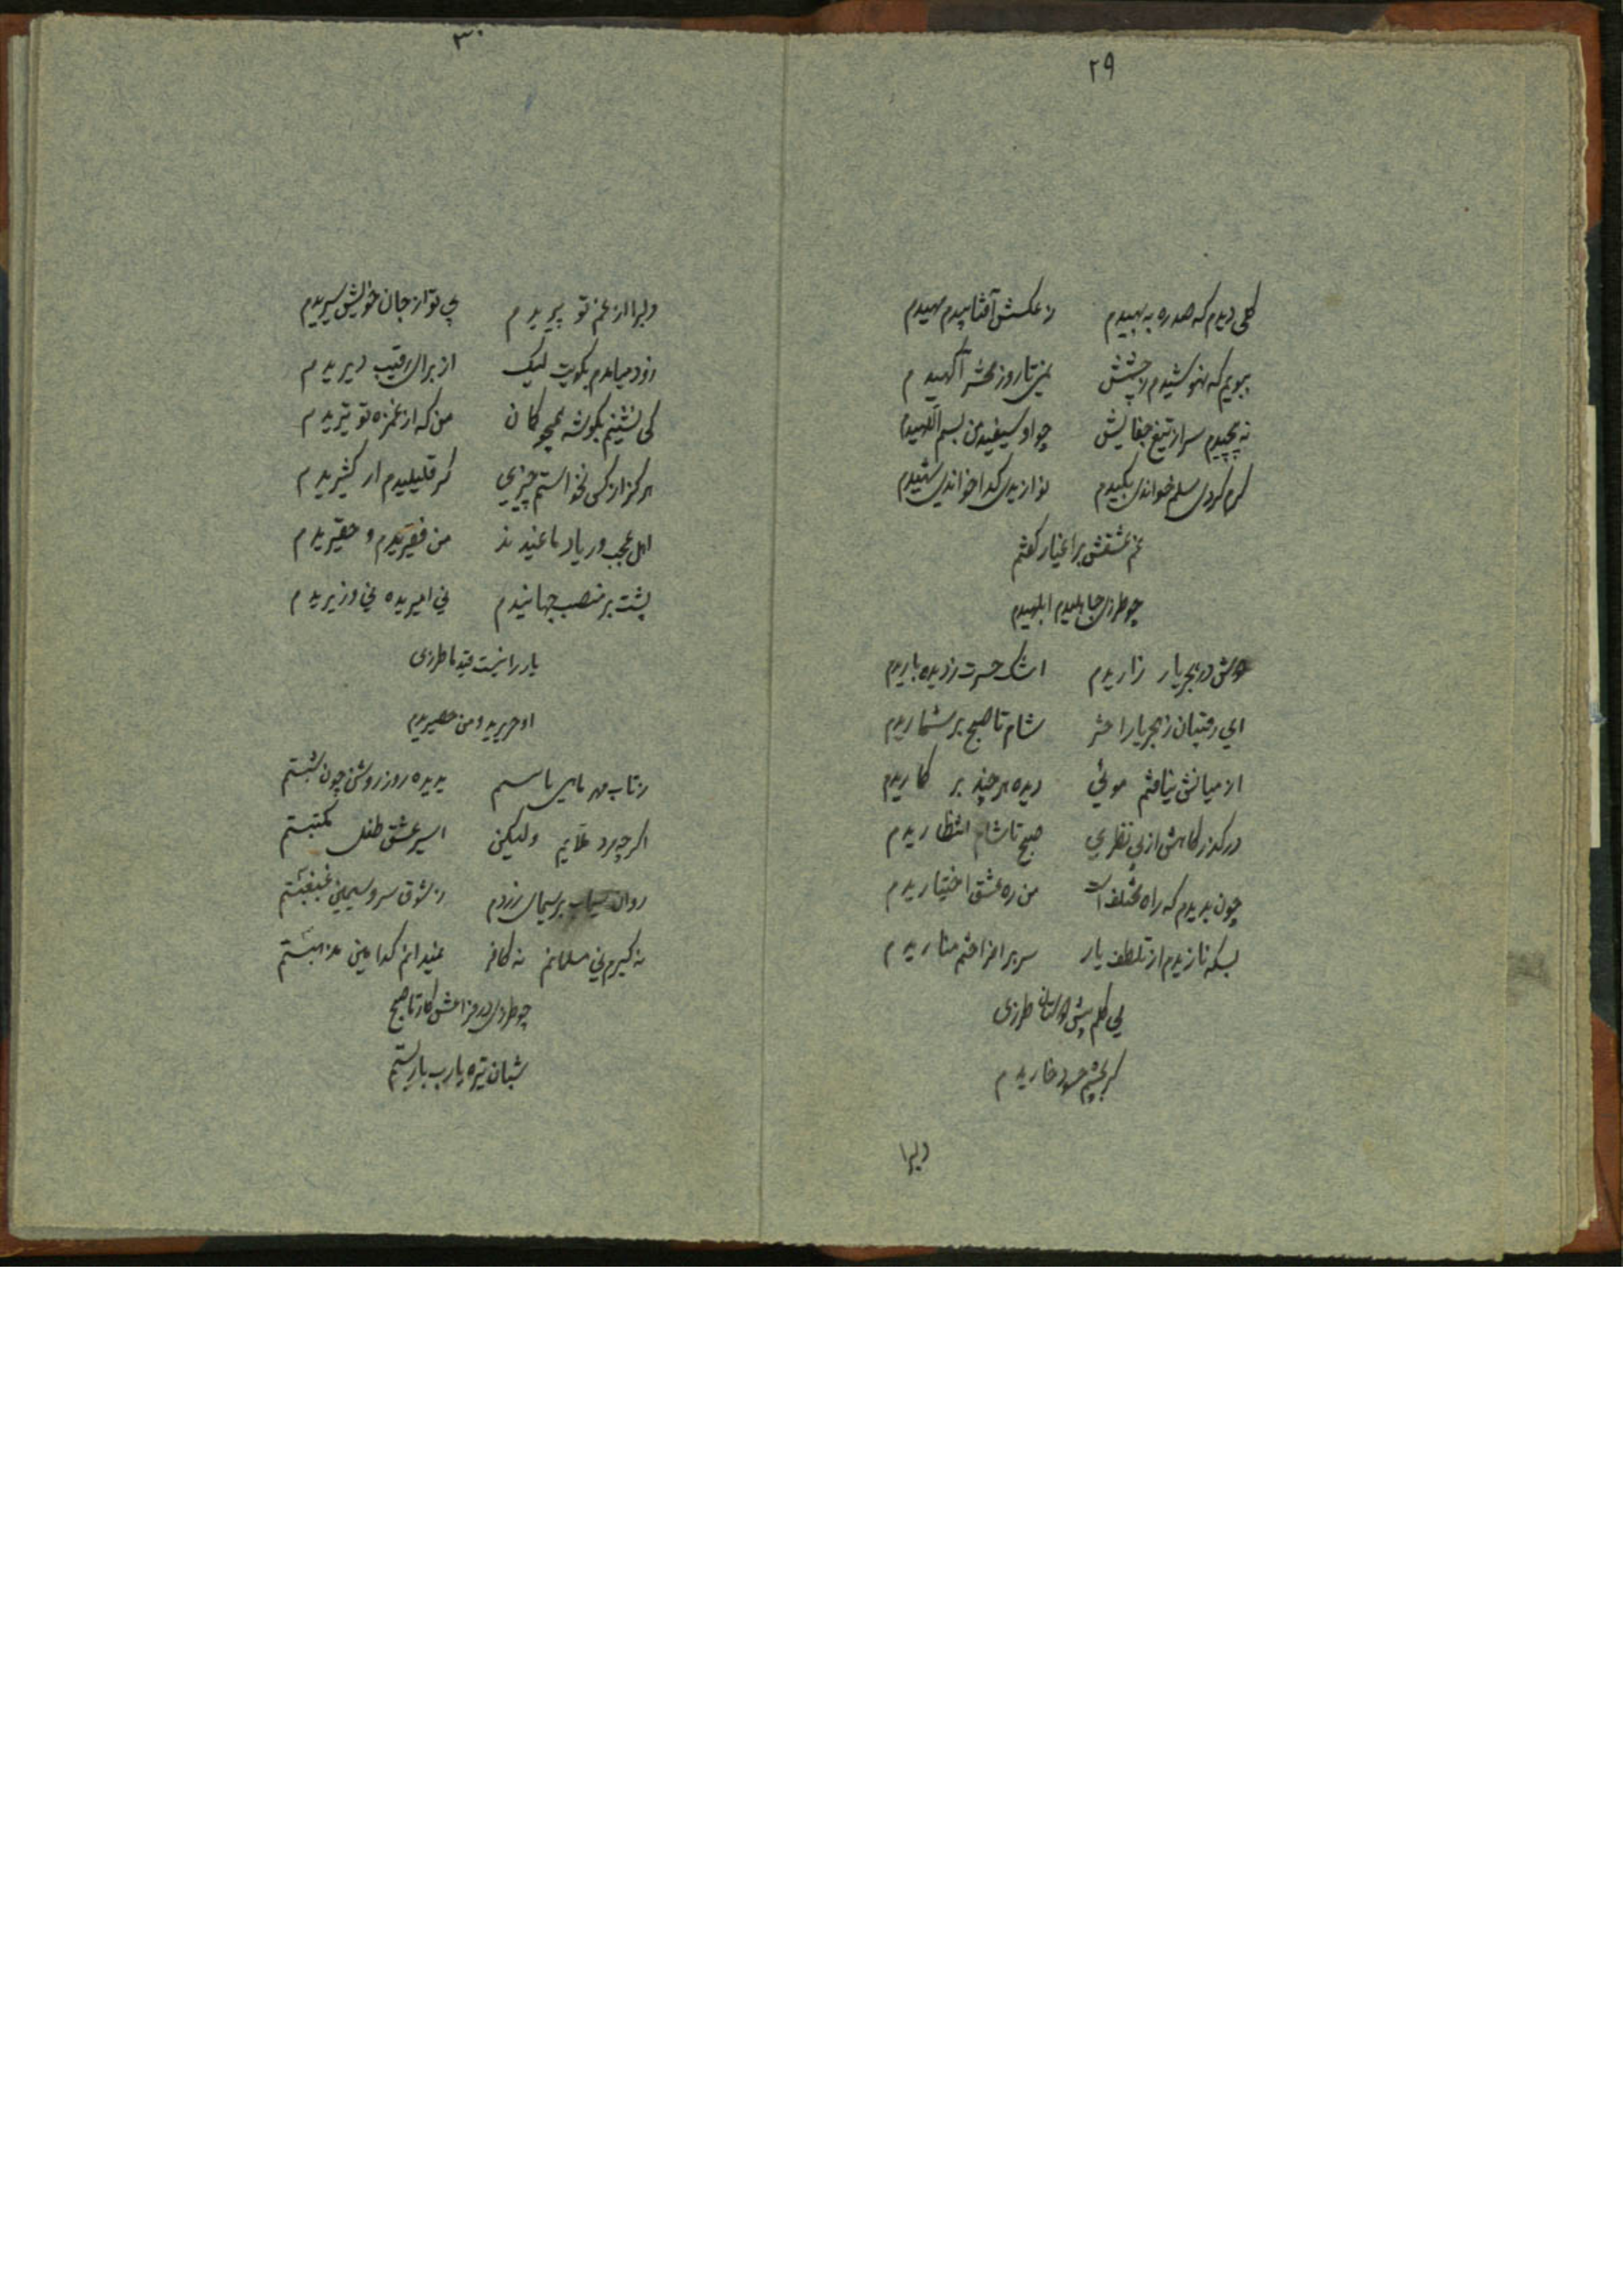 ۲۹
گلی دیدم که صد ره به بهیدم ز عکسش آفتابیدم مهیدم
ببویم که نهوشیدم ز چشمش یمنی تا روز محشر آگهیدم
نه پیچیدم سر از تیغ جفایش چو او سیفید من بسم اللهیدم
کرم کردی سلم خواندی بکیدم نوازیدی کدا خواندی شهیدم
غم عشقش براغیار کفتم
چو طرزی جاهلیدم ابلهیدم
دوش در هجر یار زاریدم اشک حسرت ز دیده باریدم
ای رقیبان ز هجر یارا حشر شام تا صبح بر شماریدم
از میانش نیافتم موئی دیده هر چند بر کاریدم
در کذرکاهش از پی نظری صبح تا شام انتظاریدم
چون بدیدم که راه مختلف است من ره عشق اختیاریدم
بسکه نازیدم از تلطف یار سر بر افراختم مناریدم
پی کلم پیش دوستان طرزی
کر بچشم حسود خاریدم
دلبرا
۳۰
دلبرا از غم تو پیریدم بی تو از جان خویش سیریدم
زود میامدم بکویت لیک از برای رقیب دیریدم
کی نشینم بکوشه همچو کان من که از غمزه تو تیریدم
هرکز از کس نخواستم چیزی کر قلیلیدم ار کثیریدم
اهل عجب و ریا دماغیدند من فقیریدم و حقیریدم
پشت بر منصب جهانیدم نی امیریده نی وزیریدم
یار را نیست قید ما طرزی
او حریرید و من حصیریدم
ز تاب مهر ماهی باسم بدیده روز روشن چون شبستم
اکر چه مرد علایم ولیکن اسیر عشق طفل مکتبستم
روان سیماب بر سیمای زردم ز شوق سرو سیمین غبغبستم
نه کبرم نی مسلمانم نه کافر نمیدانم کدامین مذهبستم
چو طرزی در فراقش کار تا صبح
شبان تیره یارب یاربستم